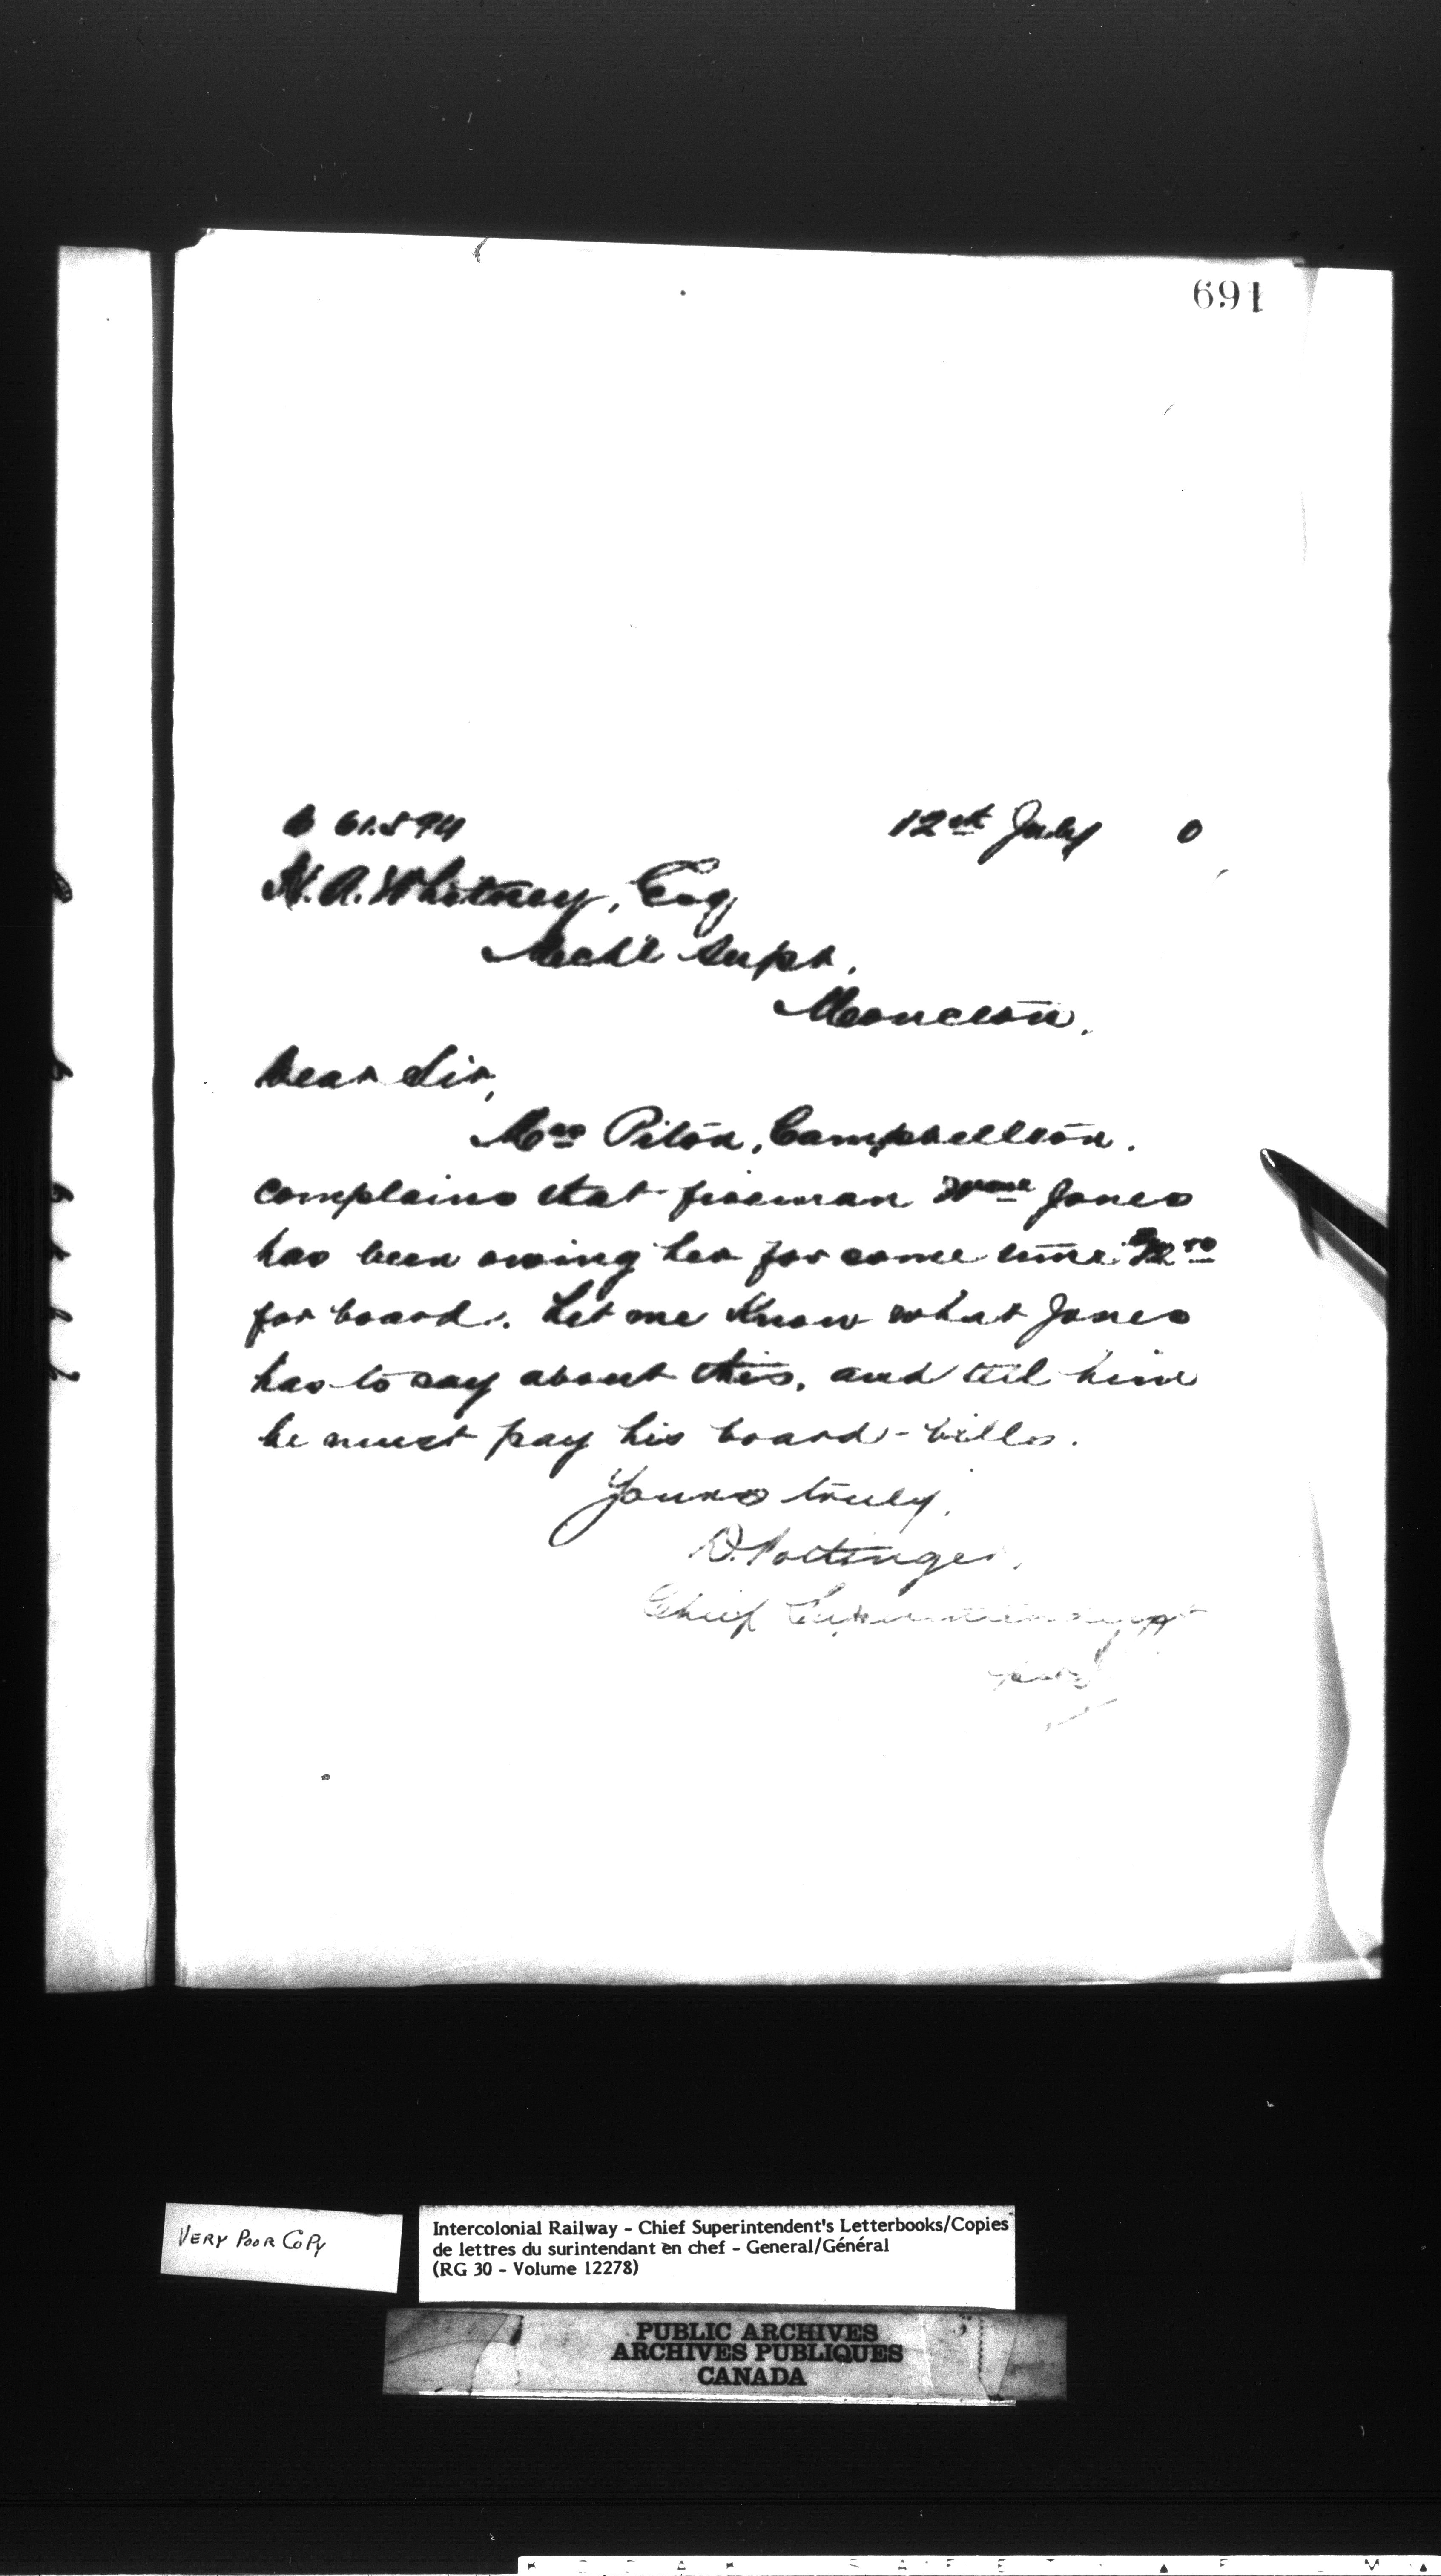 169
12th July 0
H. A. Whitney, Esq
Mechl Supt.
Moncton.
Dear Sir,
Mrs Piton, Campbellton.
complains that fireman Wm Jones
has been owing her for some time
for board. Let me know what Jones
has to say about this, and tell him
he must pay his board-bills.
Yours truly,
D. Pottinger,
Chief Superintendent
VERY POOR COPY
Intercolonial Railway - Chief Superintendent's Letterbooks/Copies
de lettres du surintendant en chef - General/Général
(RG 30 - Volume 12278)
PUBLIC ARCHIVES
ARCHIVES PUBLIQUES
CANADA